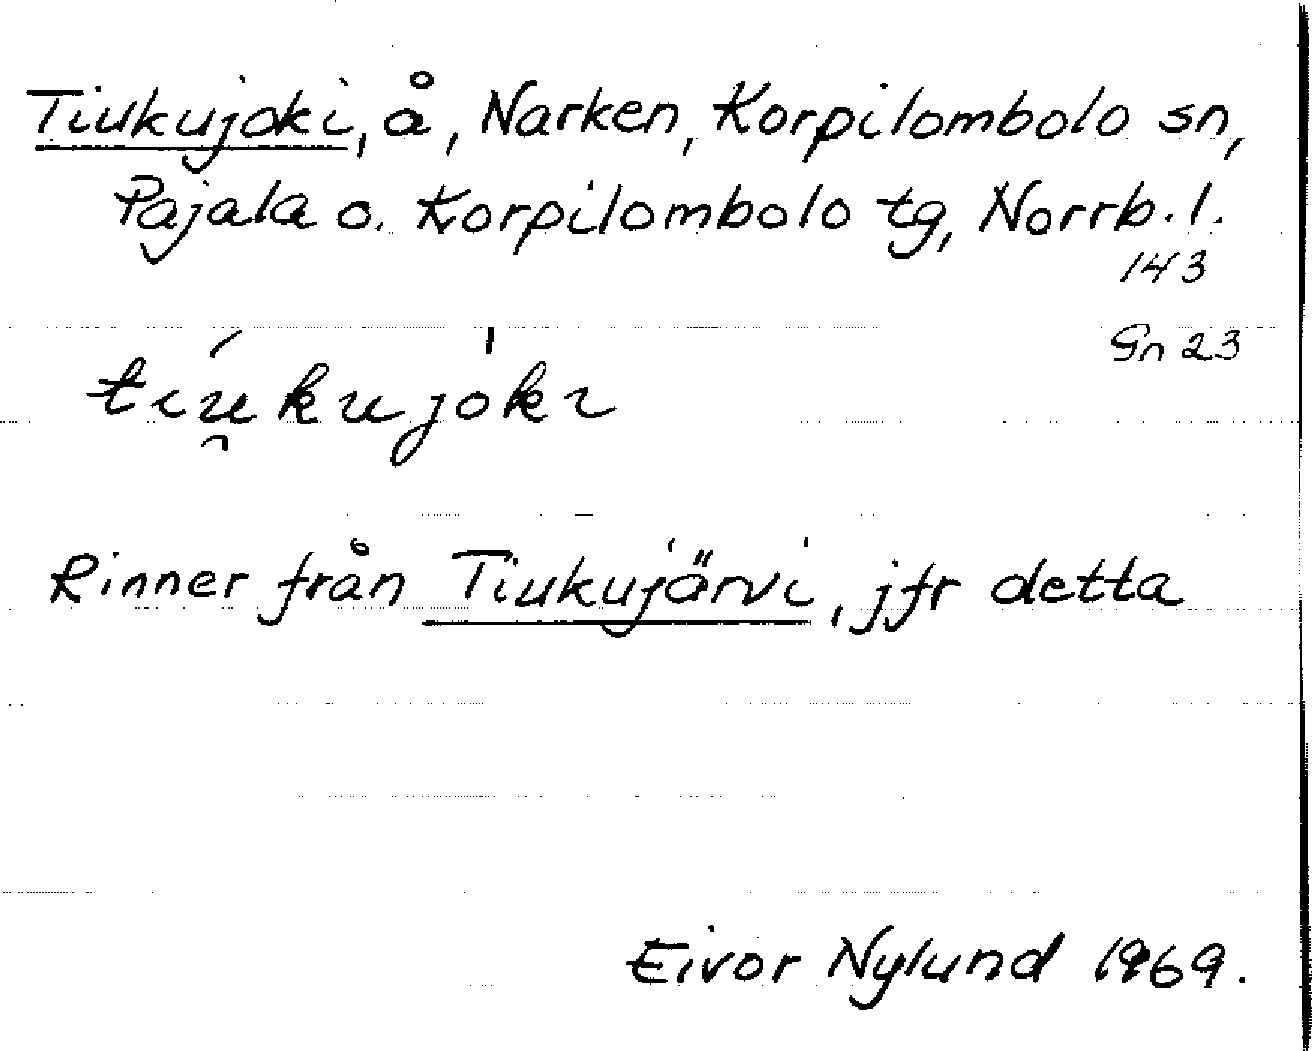 Tiukujoki, å, Narken, Korpilombolo sn,
Pajala o. Korpilombolo tg, Norrb. l.
143
Gn 23
tiu̯kujoki
Rinner från Tiukujärvi, jfr detta
Eivor Nylund 1969.